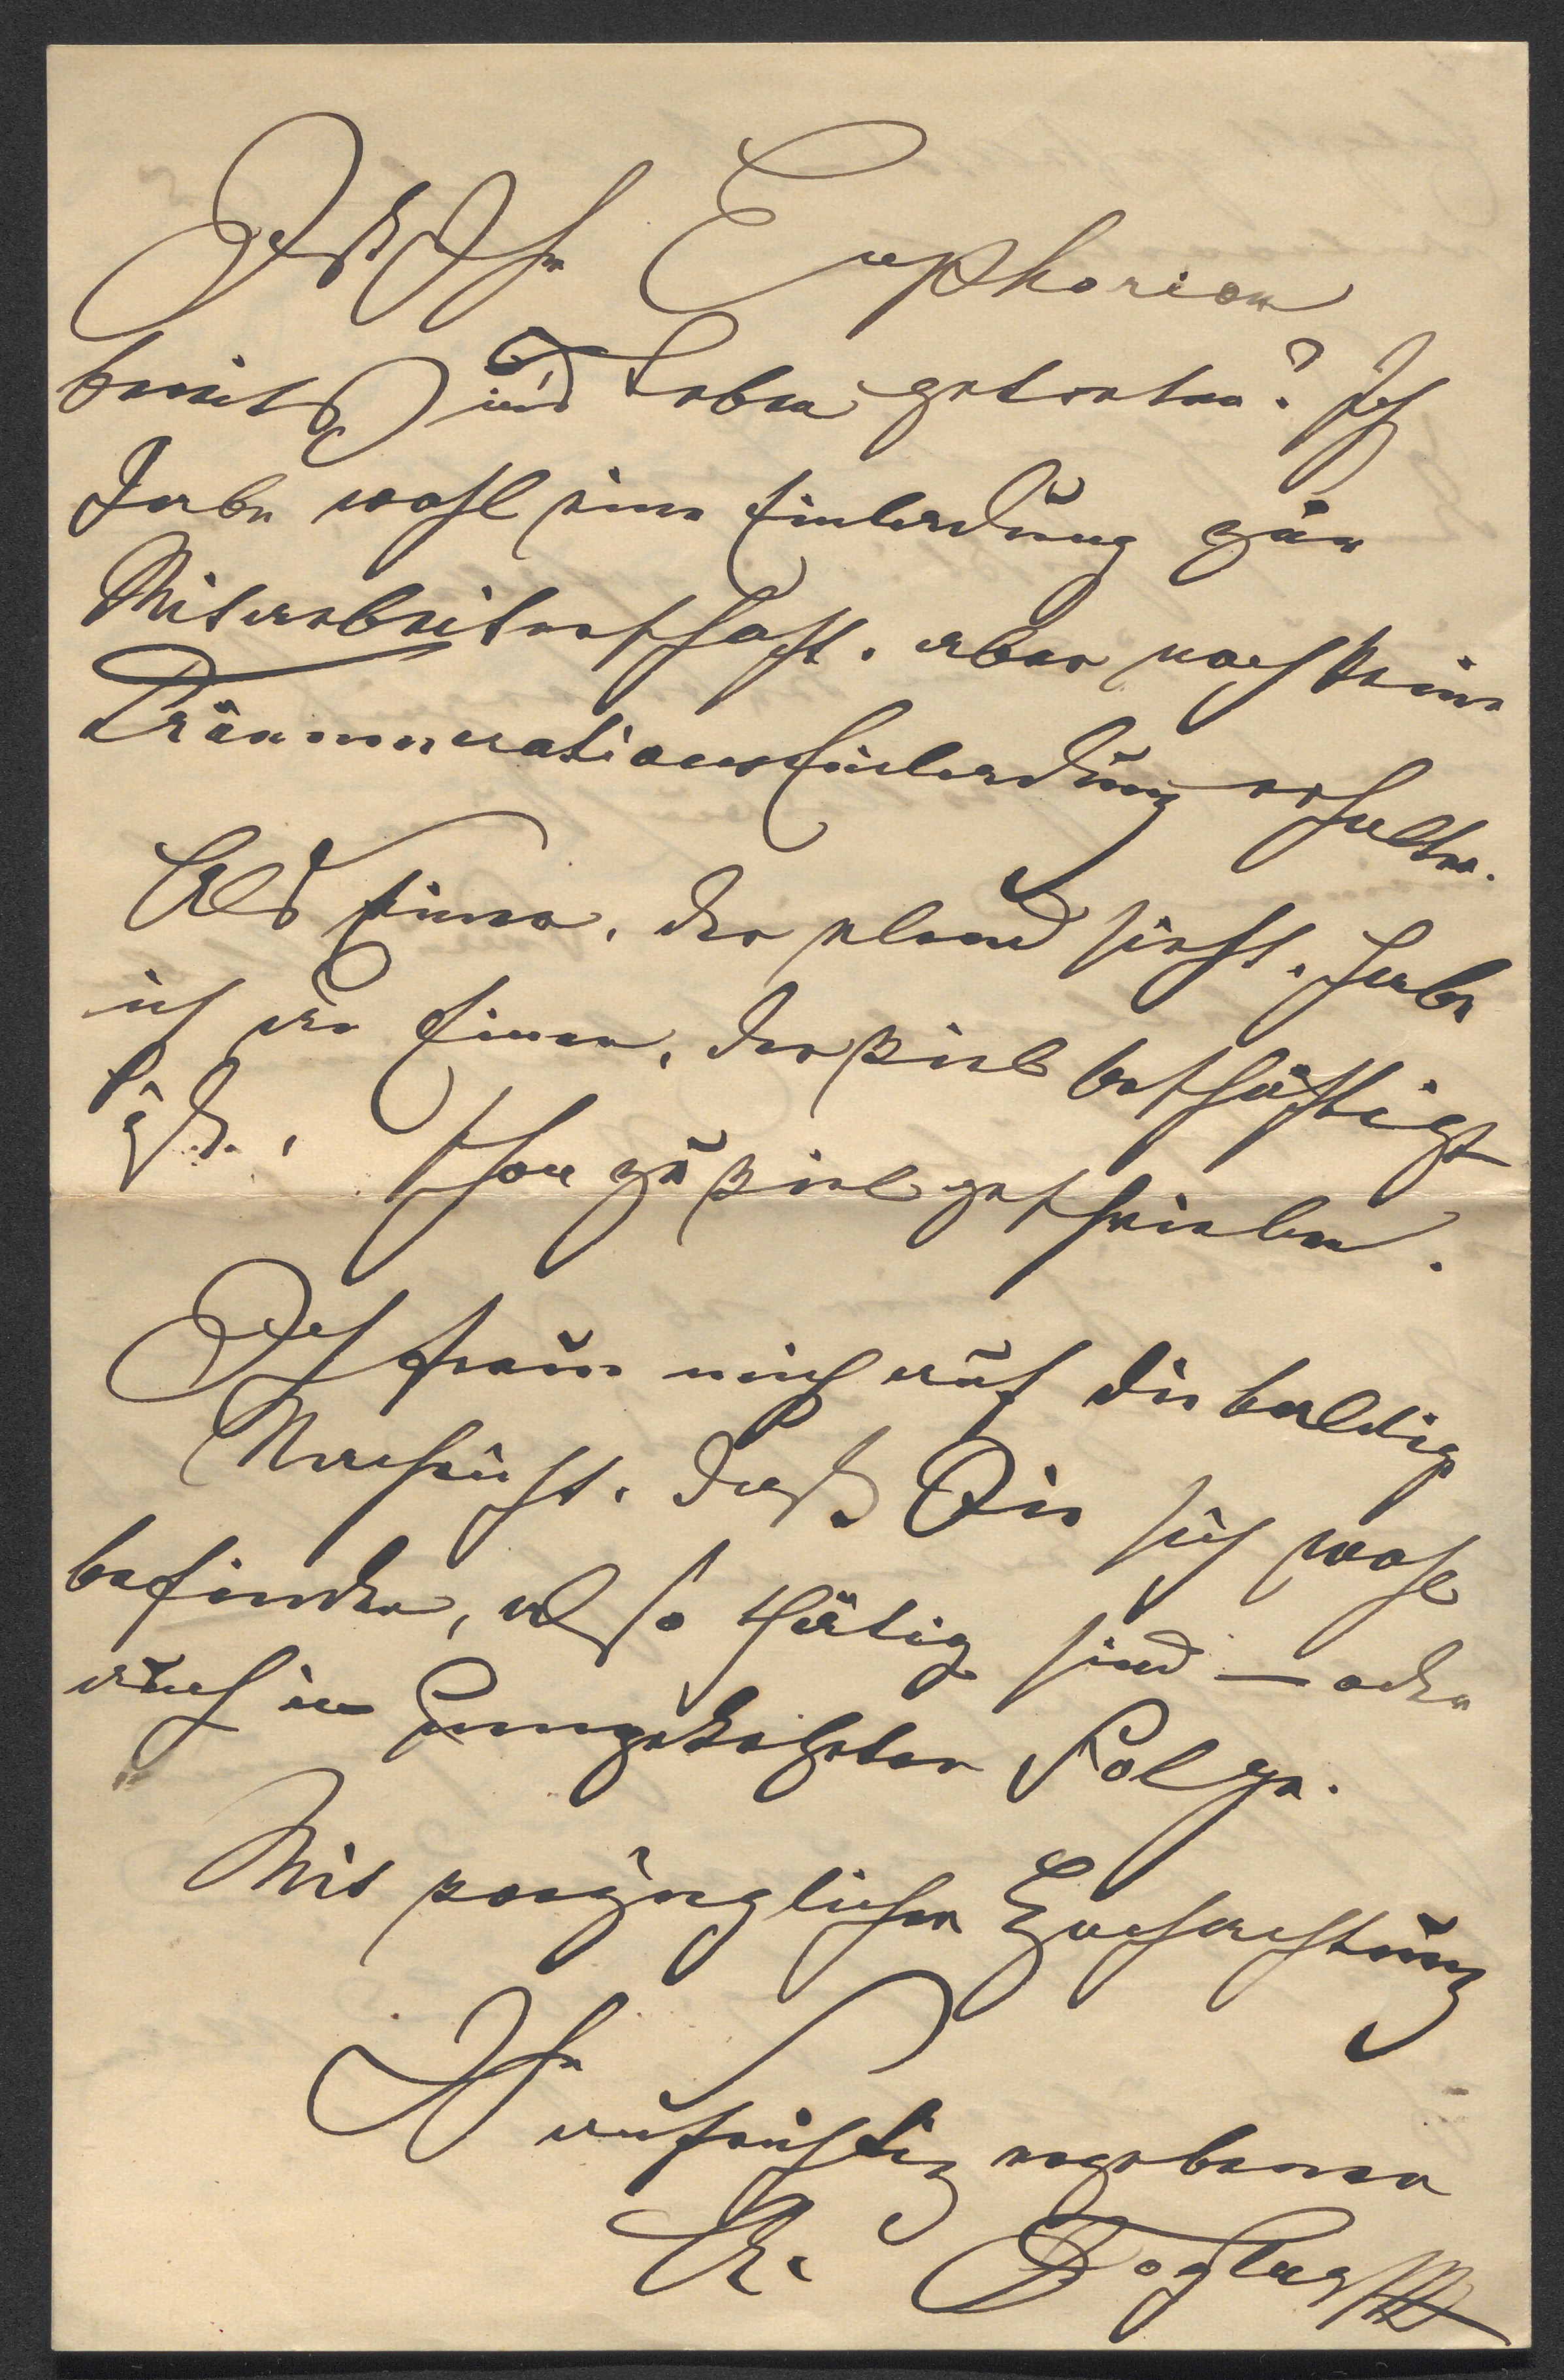 Ist Ihr Euphorion
bereits ins Leben getreten? Ich
habe wohl eine Einladung zur
Mitarbeiterschaft, aber noch keine
Pränumerations Einladung erhalten.
Als Einer, der elend sieht, habe
ich an Einen, der viel beschäftigt
ist, schon zu viel geschrieben.
Ich freue mich auf die baldige
Nachricht, daß Sie sich wohl
befinden, also thätig sind — oder
auch in umgekehrter Folge.
Mit vorzüglicher Hochachtung
Ihr
aufrichtig ergebener